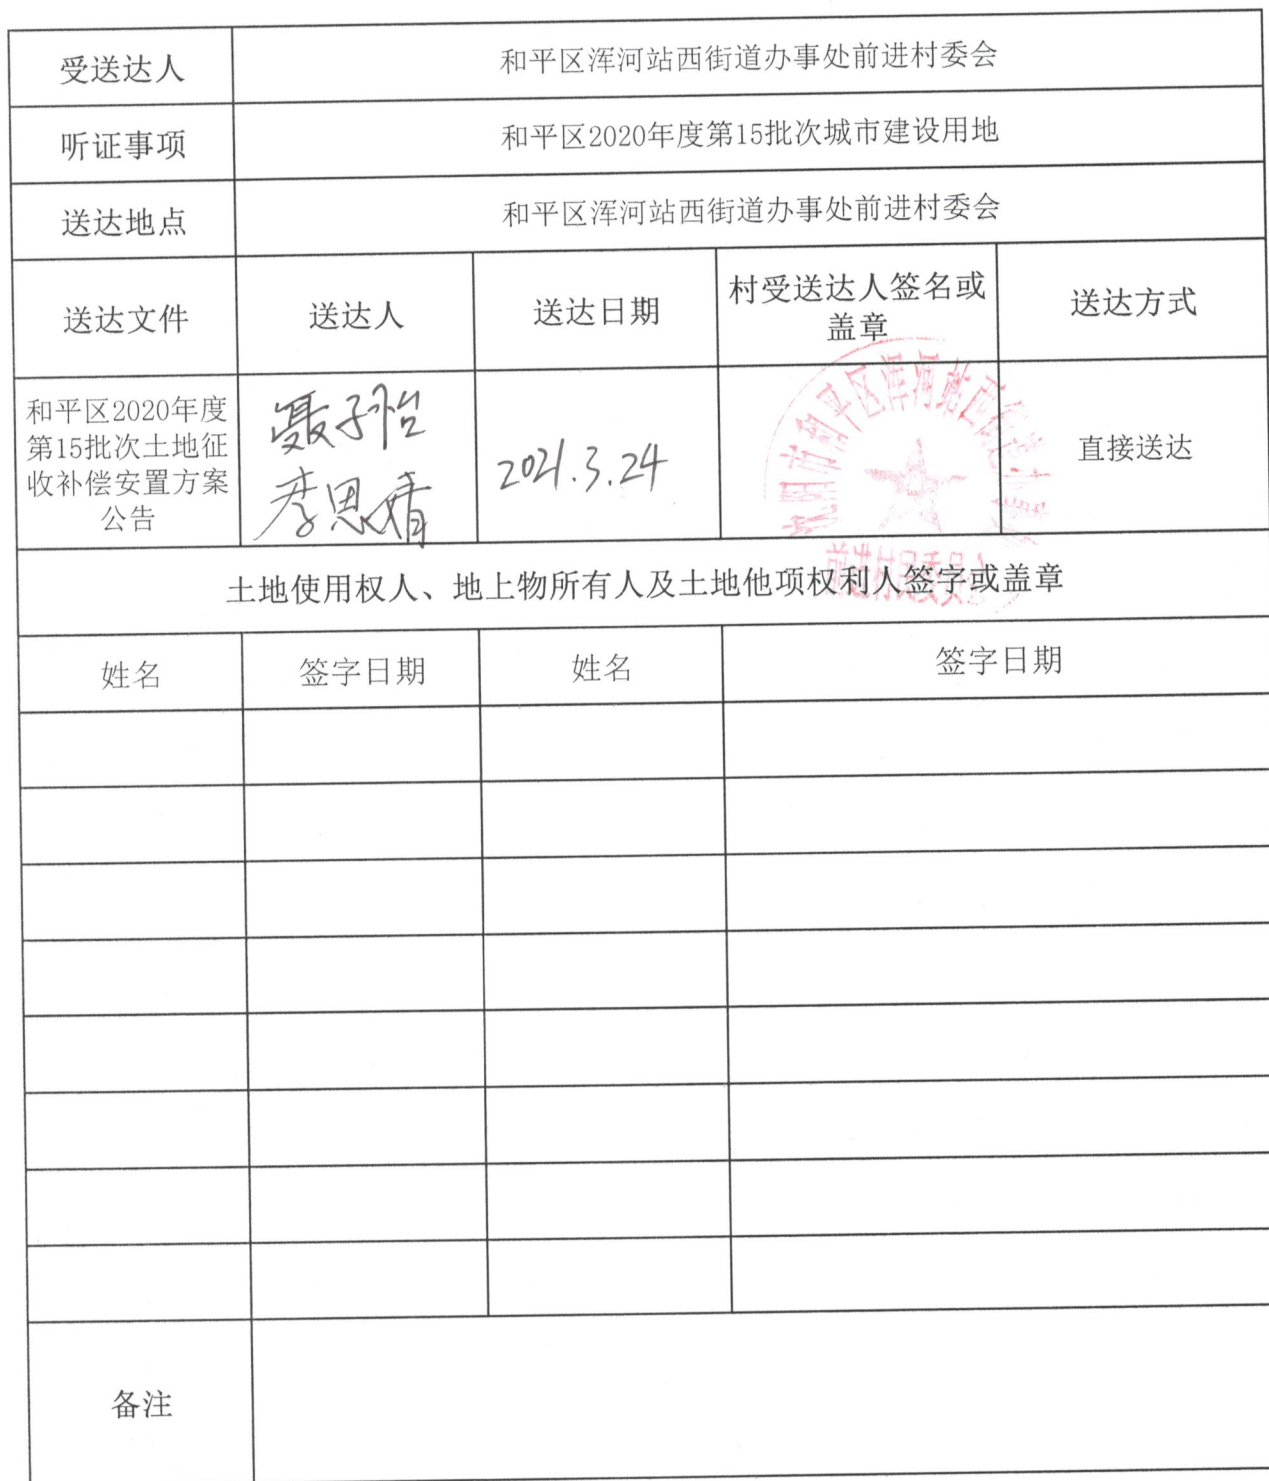 受送达人
和平区浑河站西街道办事处前进村委会
听证事项
和平区2020年度第15批次城市建设用地
送达地点
和平区浑河站西街道办事处前进村委会
送达文件
送达人
送达日期
村受送达人签名或
盖章
送达方式
和平区2020年度
第15批次土地征
收补偿安置方案
公告
聂子怡
李思婧
2021.3.24
前进村民委员会
直接送达
土地使用权人、地上物所有人及土地他项权利人签字或盖章
姓名
签字日期
姓名
签字日期
备注